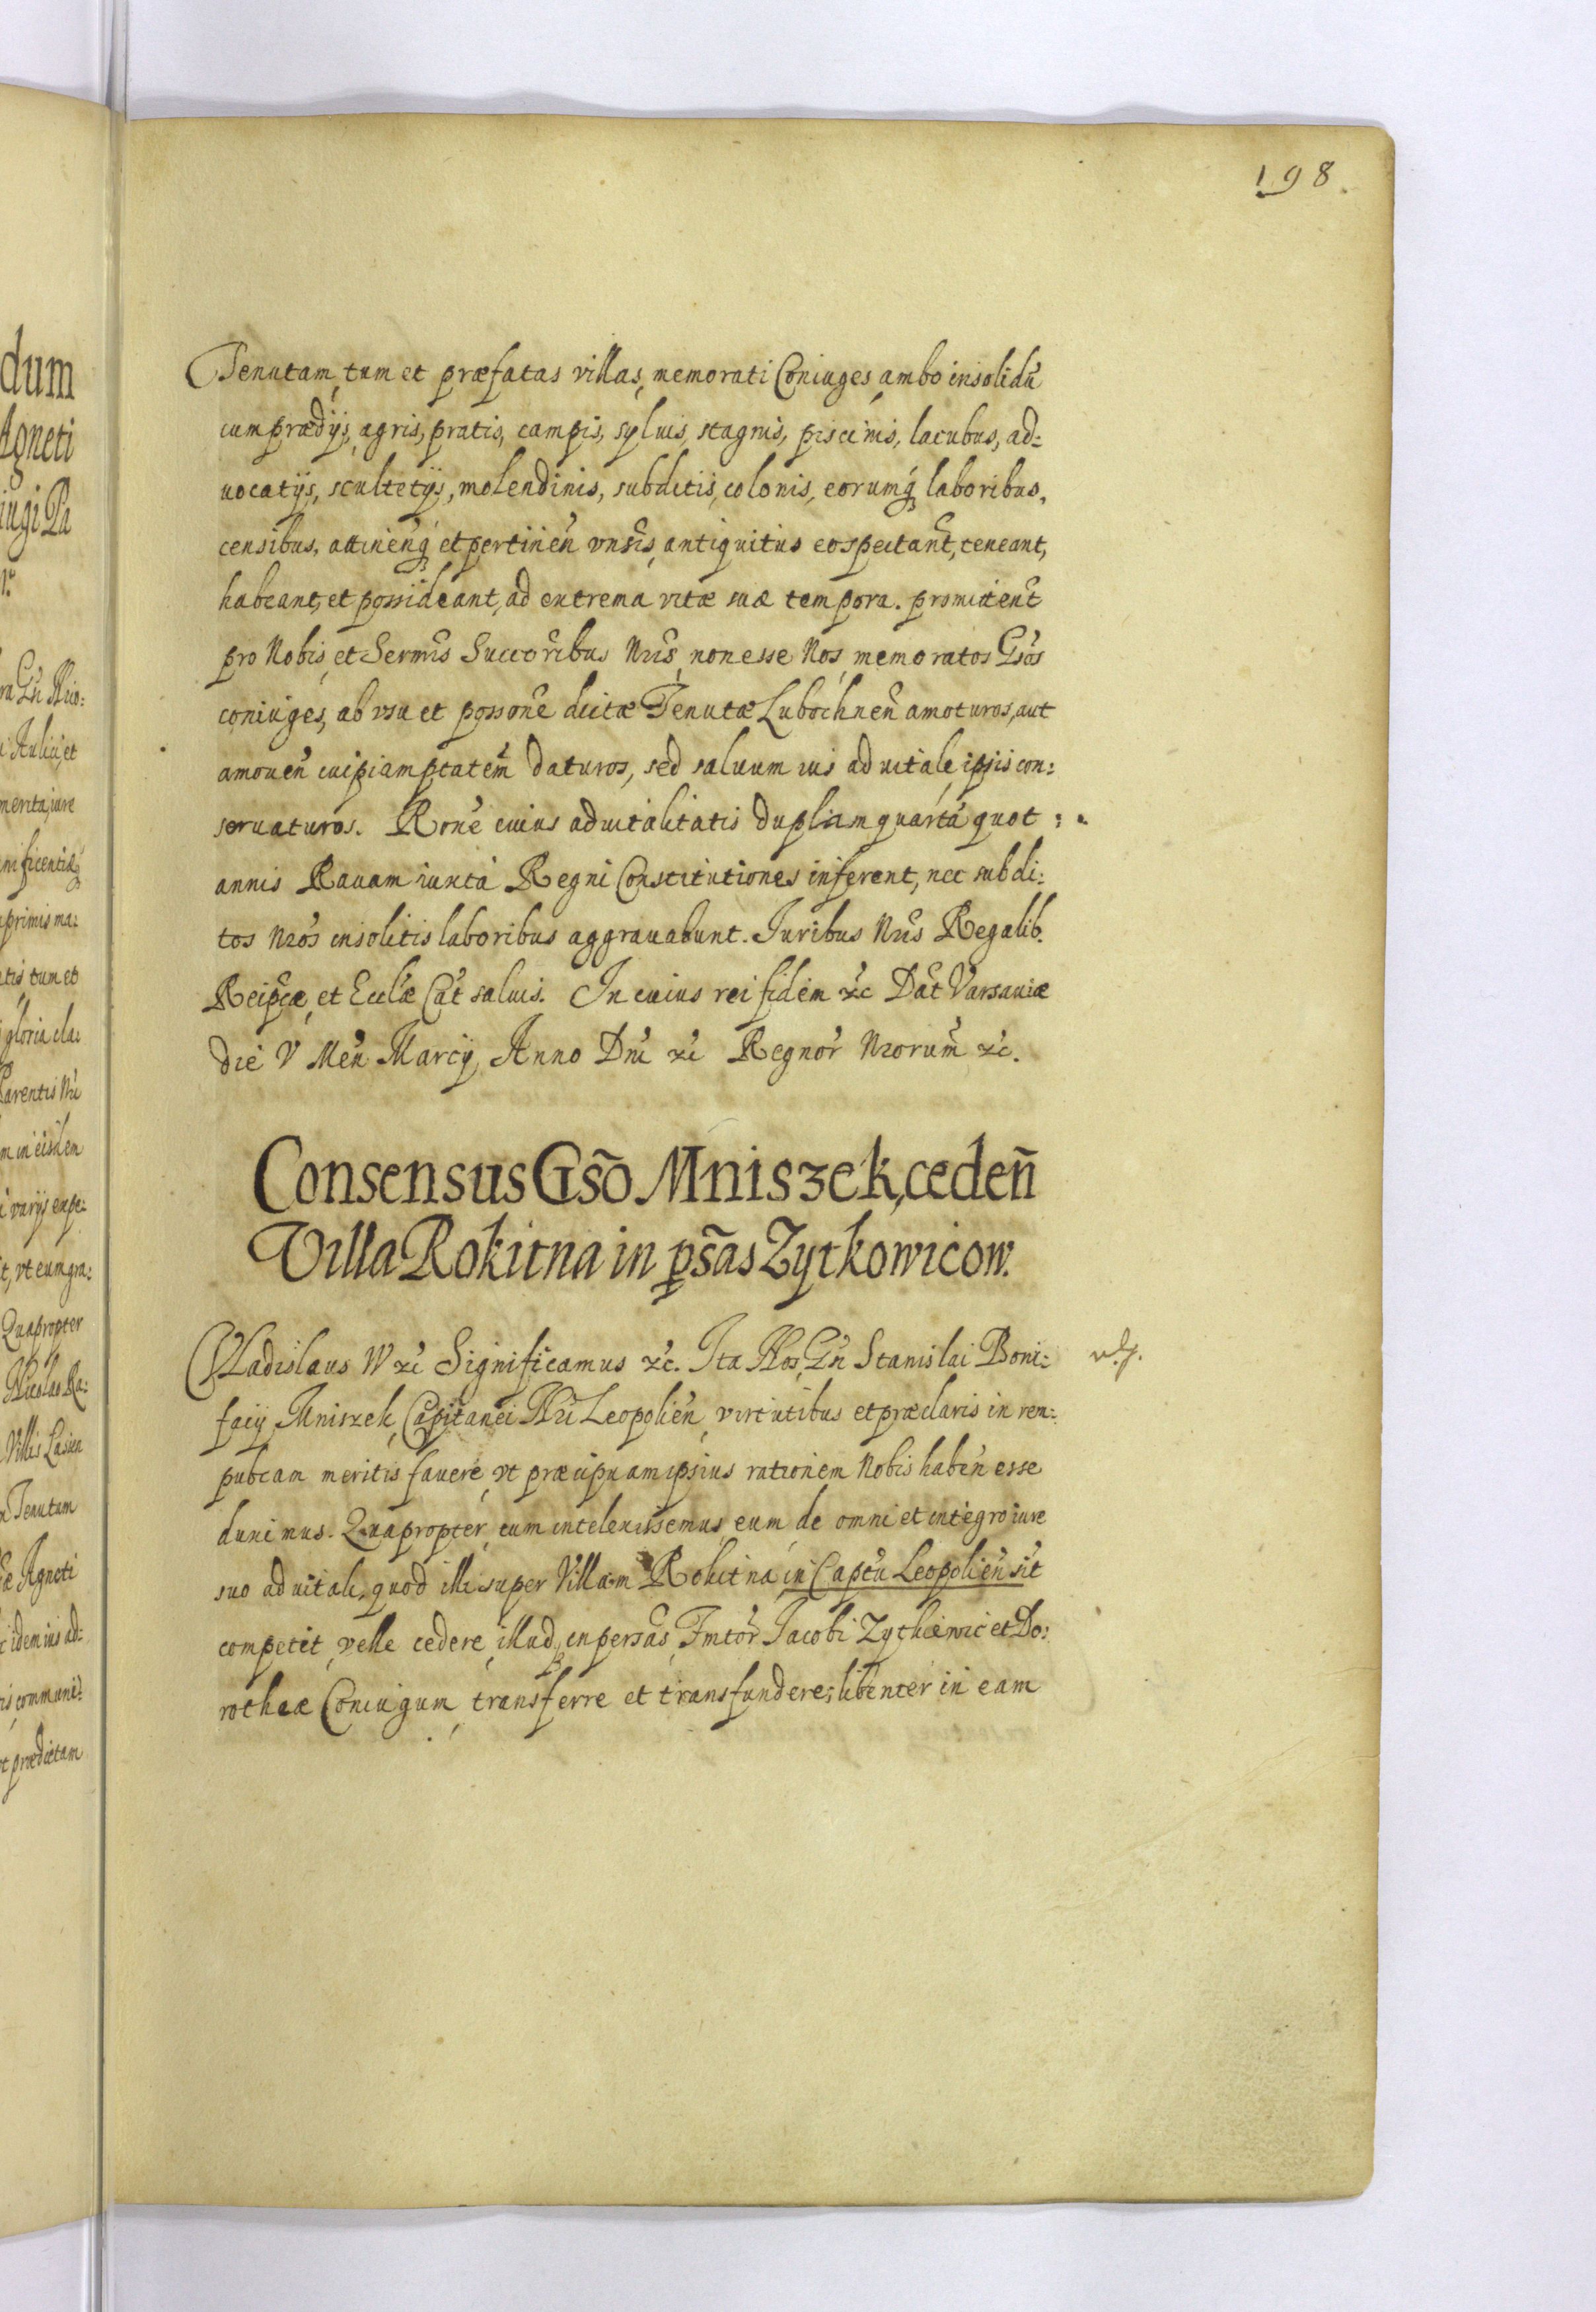 198.
Tenutam, tum et præfatas villas, memorati Coniuges, ambo insolidũ
cum prædijs, agris, pratis, campis, syluis, stagnis, piscinis, lacubus, ad-
uocatijs, scultetijs, molendinis, subditis, colonis, eorumq́ laboribus,
censibus, attinen̄q́ et pertinen̄ vnṡis, antiquitus eo spectan̄t, teneant,
habeant, et possideant, ad extrema vitæ suæ tempora. promitten̄t
pro Nobis, et Sermis Succoribus Nris, non esse Nos, memoratos Gsos
coniuges, ab vsu et possone dictæ Tenutæ Lubochnen̄ amoturos, aut
amouen̄ cuipiam ptatem̄ daturos, sed saluum ius aduitale ipsis con:
seruaturos. Rone cuius aduitalitatis duplam quartã quot:
annis Rauam iuxta Regni Constitutiones inferent, nec subdi:
tos Nros insolitis laboribus aggrauabunt. Iuribus Nris Regalib.
Reipcæ, et Ecclæ Cat̄ saluis. In cuius rei fidem ꝛc Dat̄ Varsauiæ
die V Men̄ Marcij, Anno Dni ꝛc Regnor̄ Nrorum̄ ꝛc.
Consensus Gsõ Mniszek, ceden̄
Villa Rokitna in ps̃as Zytkowicow.
Vladislaus IV ꝛc Significamus ꝛc. Ita Nos Gn̄ Stanislai Boni:
facij Mniszek, Capitanei Nri Leopolien̄, virtutibus et præclaris in rem:
pubcam meritis fauere, vt præcipuam ipsius rationem Nobis haben̄ esse
duximus. Quapropter, cum intelexissemus, eum de omni et integro iure
suo aduitali, quod illi super Villam Rokitna in Captu Leopolien̄ sit̄
competit, velle cedere, illudq́ in persas, Fmtor̄ Iacobi Zythkiewic et Do:
rotheæ Coniugum, transferre et transfundere; libenter in eam